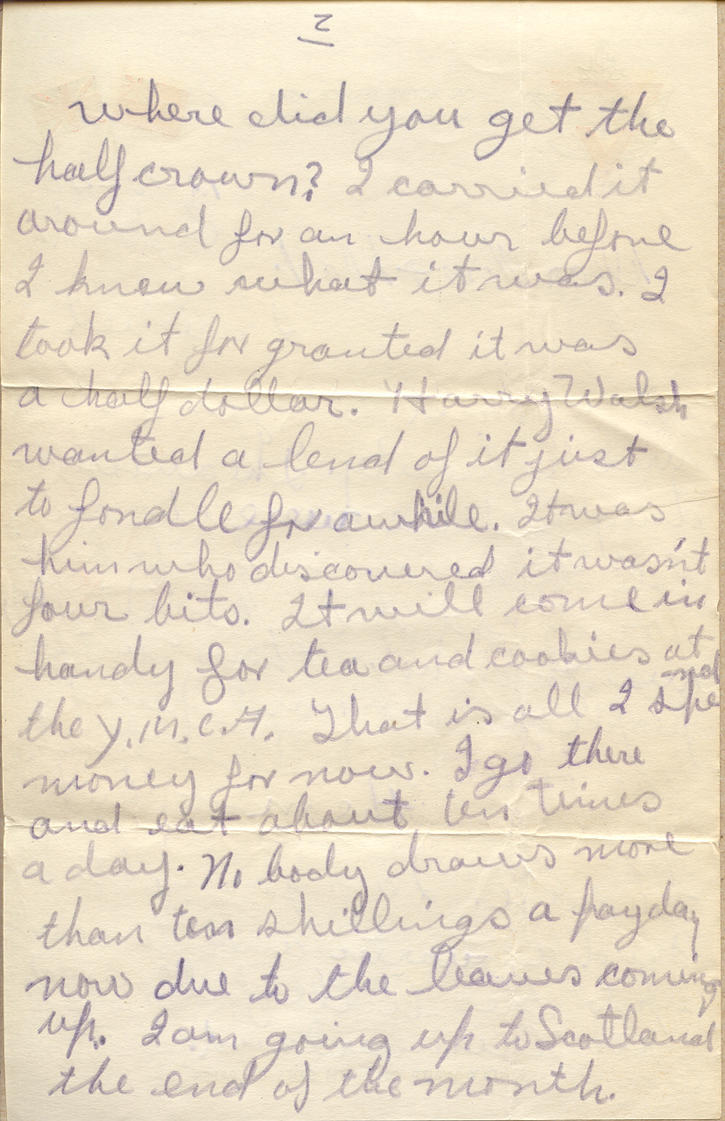 2
where did you get the
half crown? I carried it
around for an hour before
I knew what it was. I
took it for granted it was
a half dollar. Harry Walsh
wanted a lend of it just
to fondle for awhile. It was
him who discovered it wasn't
four bits. It will come in
handy for tea and cookies at
the Y.M.C.A. That is all I spend
money for now. I go there
and eat about ten times
a day. No body draws more
than ten shillings a payday
now due to the leaves coming
up. I am going up to Scotland
the end of the month.